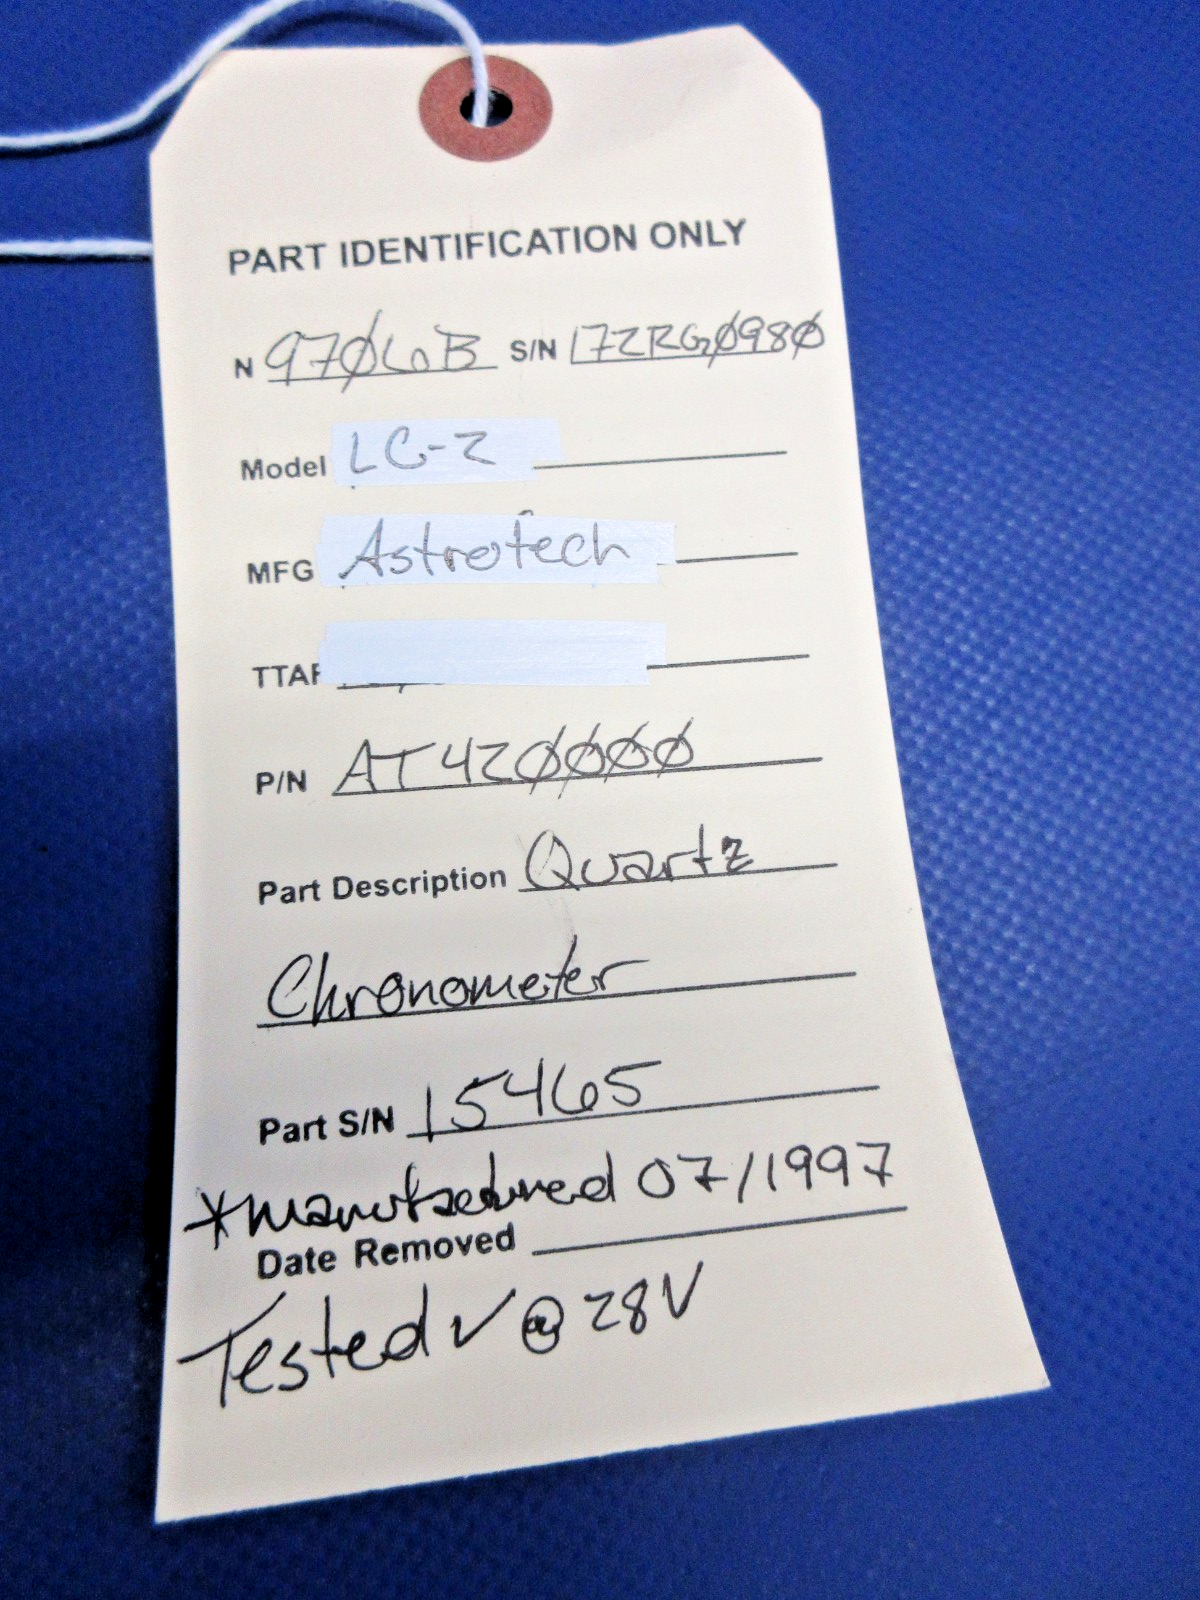 PART IDENTIFICATION ONLY
N 97060B S/N 172RG0980
Model LC-2
MFG Astrotech
TTAF
P/N AT420000
Part Description Quartz
Chronometer
Part S/N 15465
*Manufactured 07/1997
Date Removed
Tested ✓ @ 28V